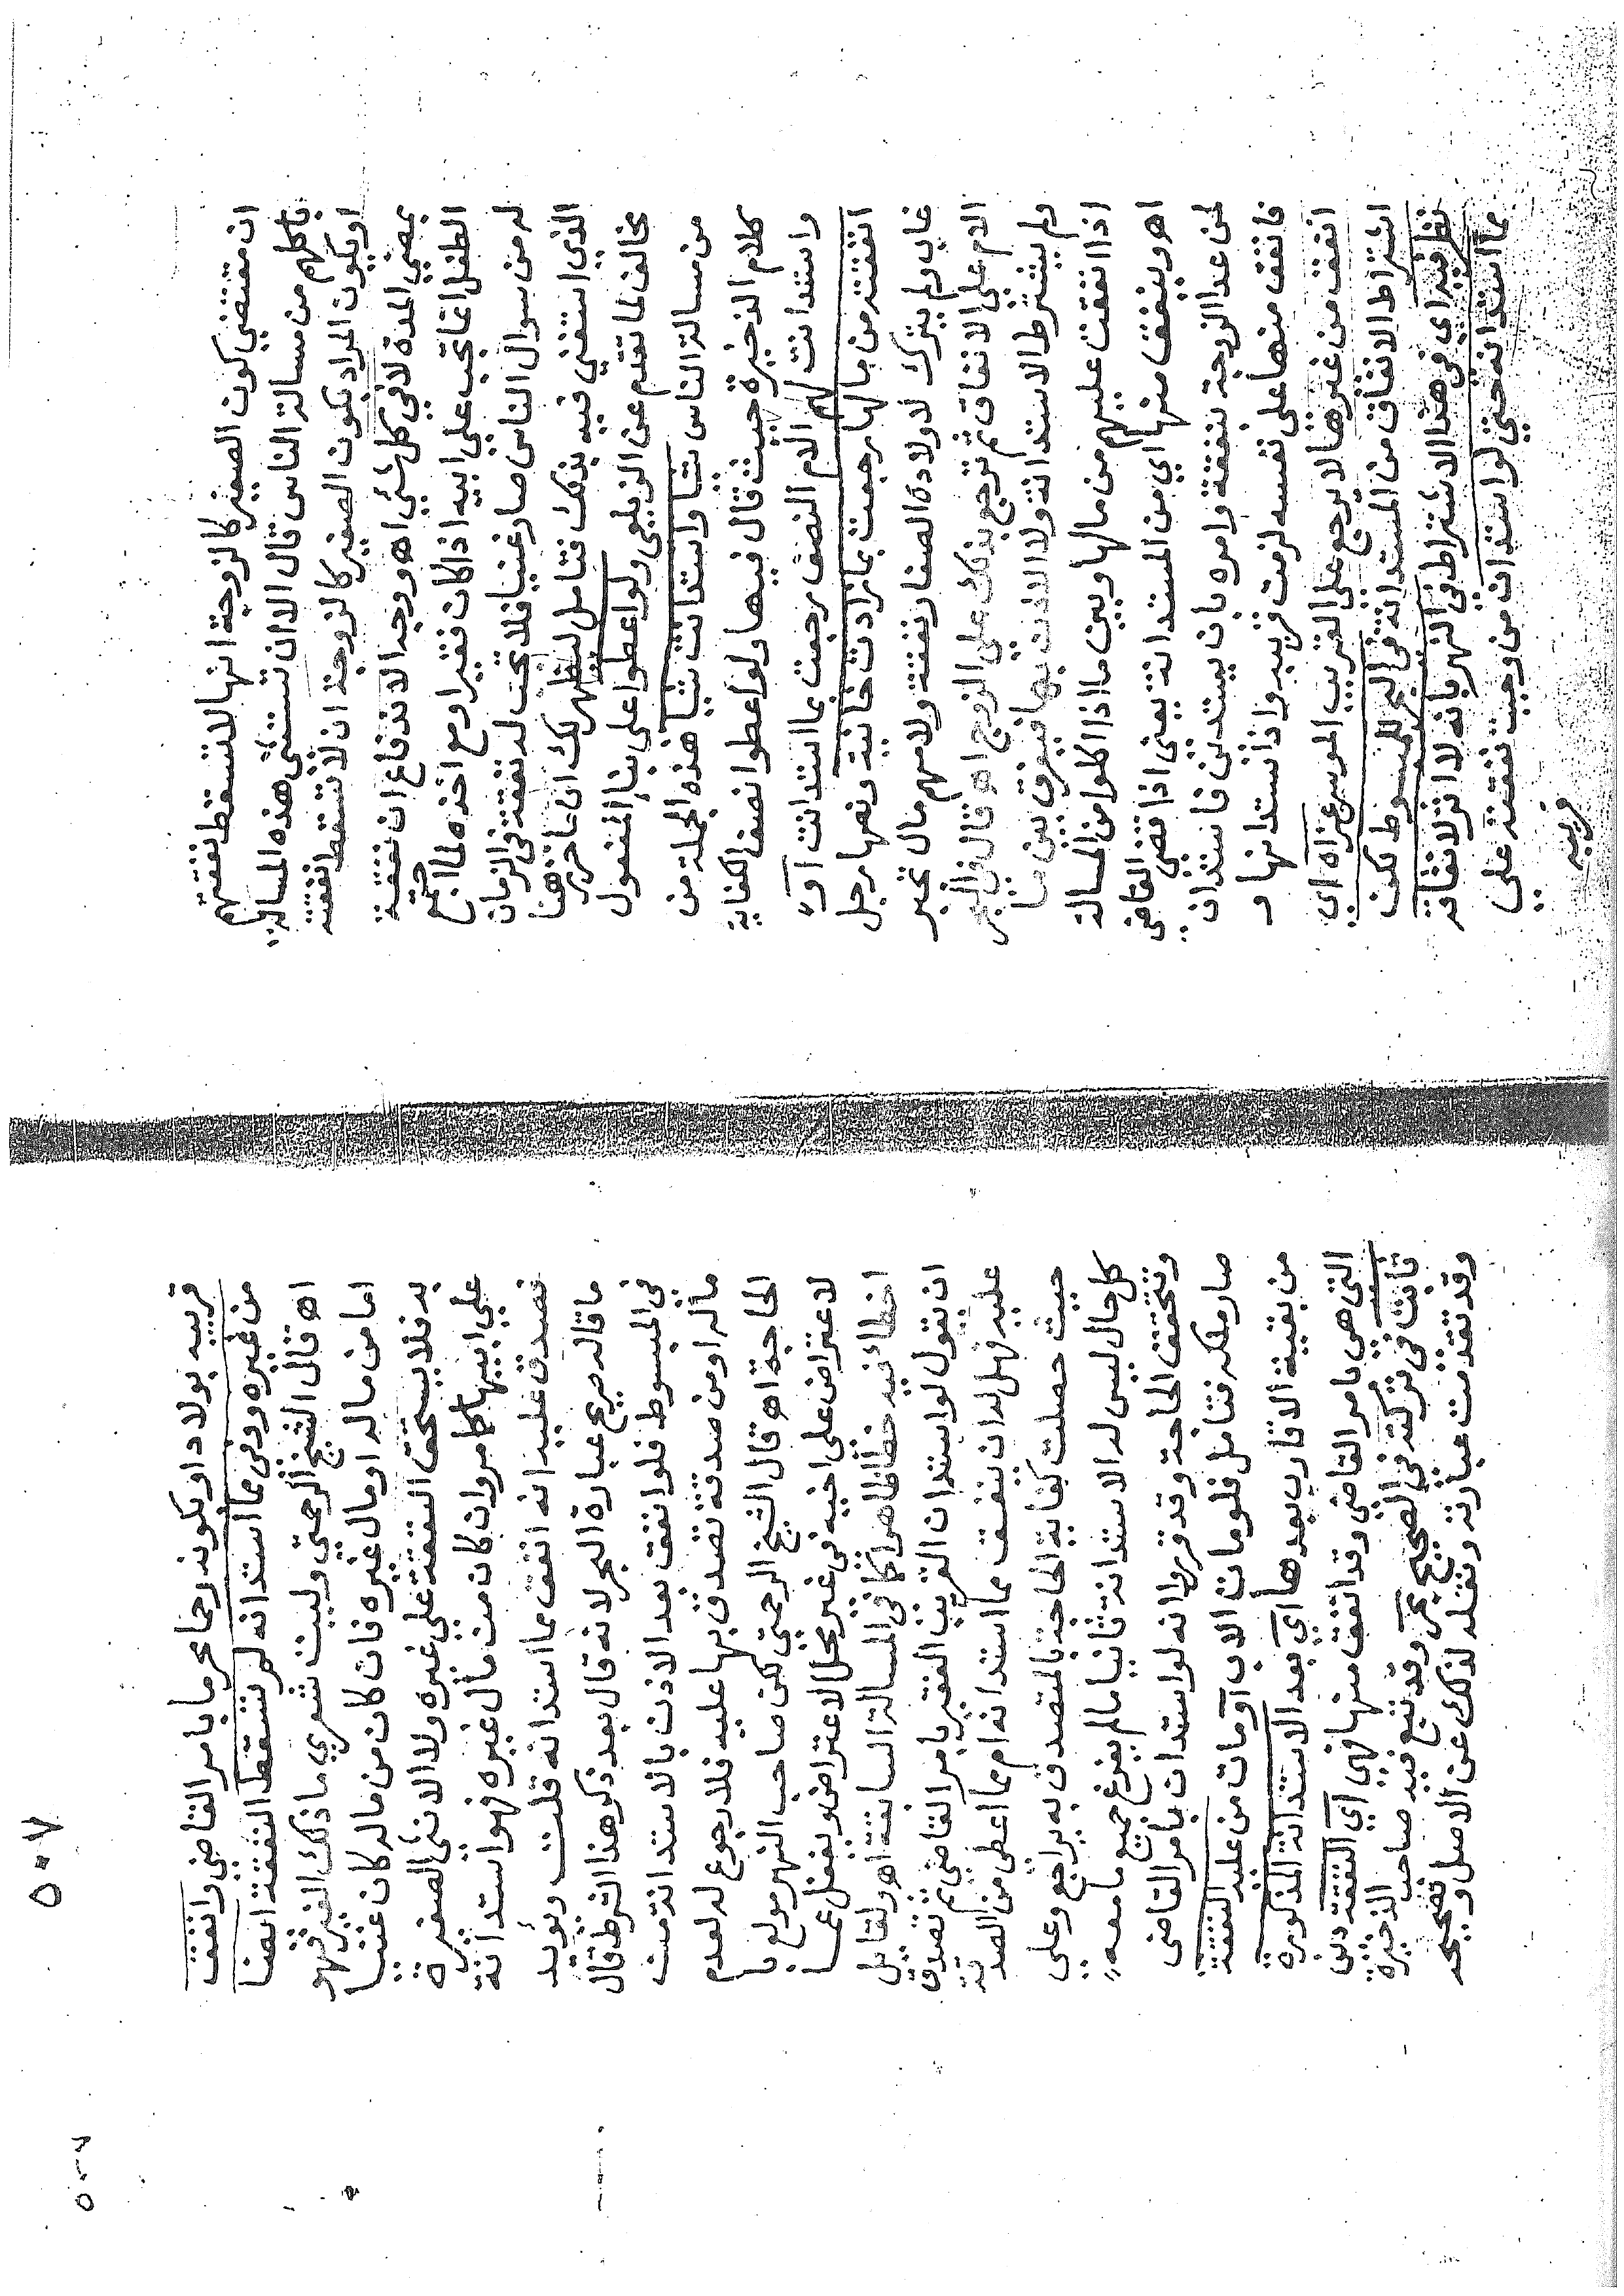 ان مقتضي كون الصغير كالزوجة انها لا تسقط نفقتهم
باكلهم من مسالة الناس قال الا ان تستثني هذه المسالة
او يكون المراد بكون الصغير كالزوجة ان لا تسقط نفقته
بمضي المدة لا في كل شيء اهـ ووجه الاندفاع ان نفقة
الطفل انما تجب علي ابيه اذا كان فقيرا ومع اخذه لما اجتمع
له من سوال الناس صار غنيا فلا تجب له نفقة في الزمان
الذي استغني فيه بذلك فتامل ليظهر لك ان ما حرره هنا
مخالف لما تقدم عن الزيلعي ولو اعطوا علي بناء المفعول
من مسالة الناس شيا واستدانت شيا هذه الجملة من
كلام الذخيرة حيث قال فيها ولو اعطوا نصف الكفاية
واستدانت لهم الام النصف رجعت بما استدانت او
انفقته من مالها رجعت بما زادت خانية ونصها رجل
غاب ولم يترك لاولاده الصغار نفقة ولامهم مال تجبر
الام علي الانفاق ثم ترجع بذلك علي الزوج اهـ قال في البحر
ولم يشترط الاستدانة ولا الاذن بها فيفرق بين ما
اذا انفقت عليهم من مالها وبين ما اذا اكلوا من المسالة
اهـ وينفق منها اي من المستدانة يعني اذا قضي القاضي
لمن عدا الزوجة بنفقة وامره بان يستدين فاستدان
فانفق منها علي نفسه لزمت قريبه واذا استدانها و
انفق من غيرها لا يرجع علي القريب الموسر عزاه اي
اشتراط الانفاق من المستدانة في البحر للمبسوط لكن
نظر فيه اي في هذا الاشتراط في النهر بانه لا اثر لانفاقه
مما استدانه حتي لو استدان من وجبت نفقته علي
قريبه
٥٠٧
٥٠٧
قريبه بولاد او بكونه رحما محرما بامر القاضي وانفق
من غيره ووفي مما استدانه لم تسقط النفقة ايضا
اهـ قال الشيخ الرحمتي وليت شعري ما ذلك الغير فهو
اما من ماله او مال غيره فان كان من ماله كان غنيا
به فلا يستحق النفقة علي غيره ولا الانثي الصغيرة
علي ابيها كما مر وان كان من مال غيره فهو استدانة
تصدق عليه انه انفق مما استدانه قلت ويؤيد
ما قاله صريح عبارة البحر لانه قال بعد ذكر هذا الشرط قال
في المبسوط فلو انفق بعد الاذن بالاستدانة من
ماله او من صدقة تصدق بها عليه فلا رجوع له لعدم
الحاجة اهـ قال الشيخ الرحمتي لكن صاحب النهر مولع با
لاعتراض علي اخيه في غير محل الاعتراض ويغفل عما
اخطا فيه خطا ظاهرا كما في المسالة السابقة اهـ ولقايل
ان يقول لو استدان القريب الفقير بامر القاضي ثم تصدق
عليه فهل له ان ينفق مما استدانه ام مما اعطي من الصدقة
حيث حصلت كفاية الحاجة بالمتصدق به يراجع وعلي
كل حال ليس له الاستدانة ثانيا ما لم يفرغ جميع ما معه
وتتحقق الحاجة وقد قرروا انه لو استدان بامر القاضي
صار ملكه فتامل فلو مات الاب او مات من عليه النفقة
من بقية الاقارب بعدها اي بعد الاستدانة المذكورة
التي هي بامر القاضي وقد انفق منها فهي اي النفقة دين
ثابت في تركته في الصحيح بحر وقد تبع فيه صاحب الذخيرة
وقد تقدمت عبارته ونقله لذلك عن الاصل وتصحيحه